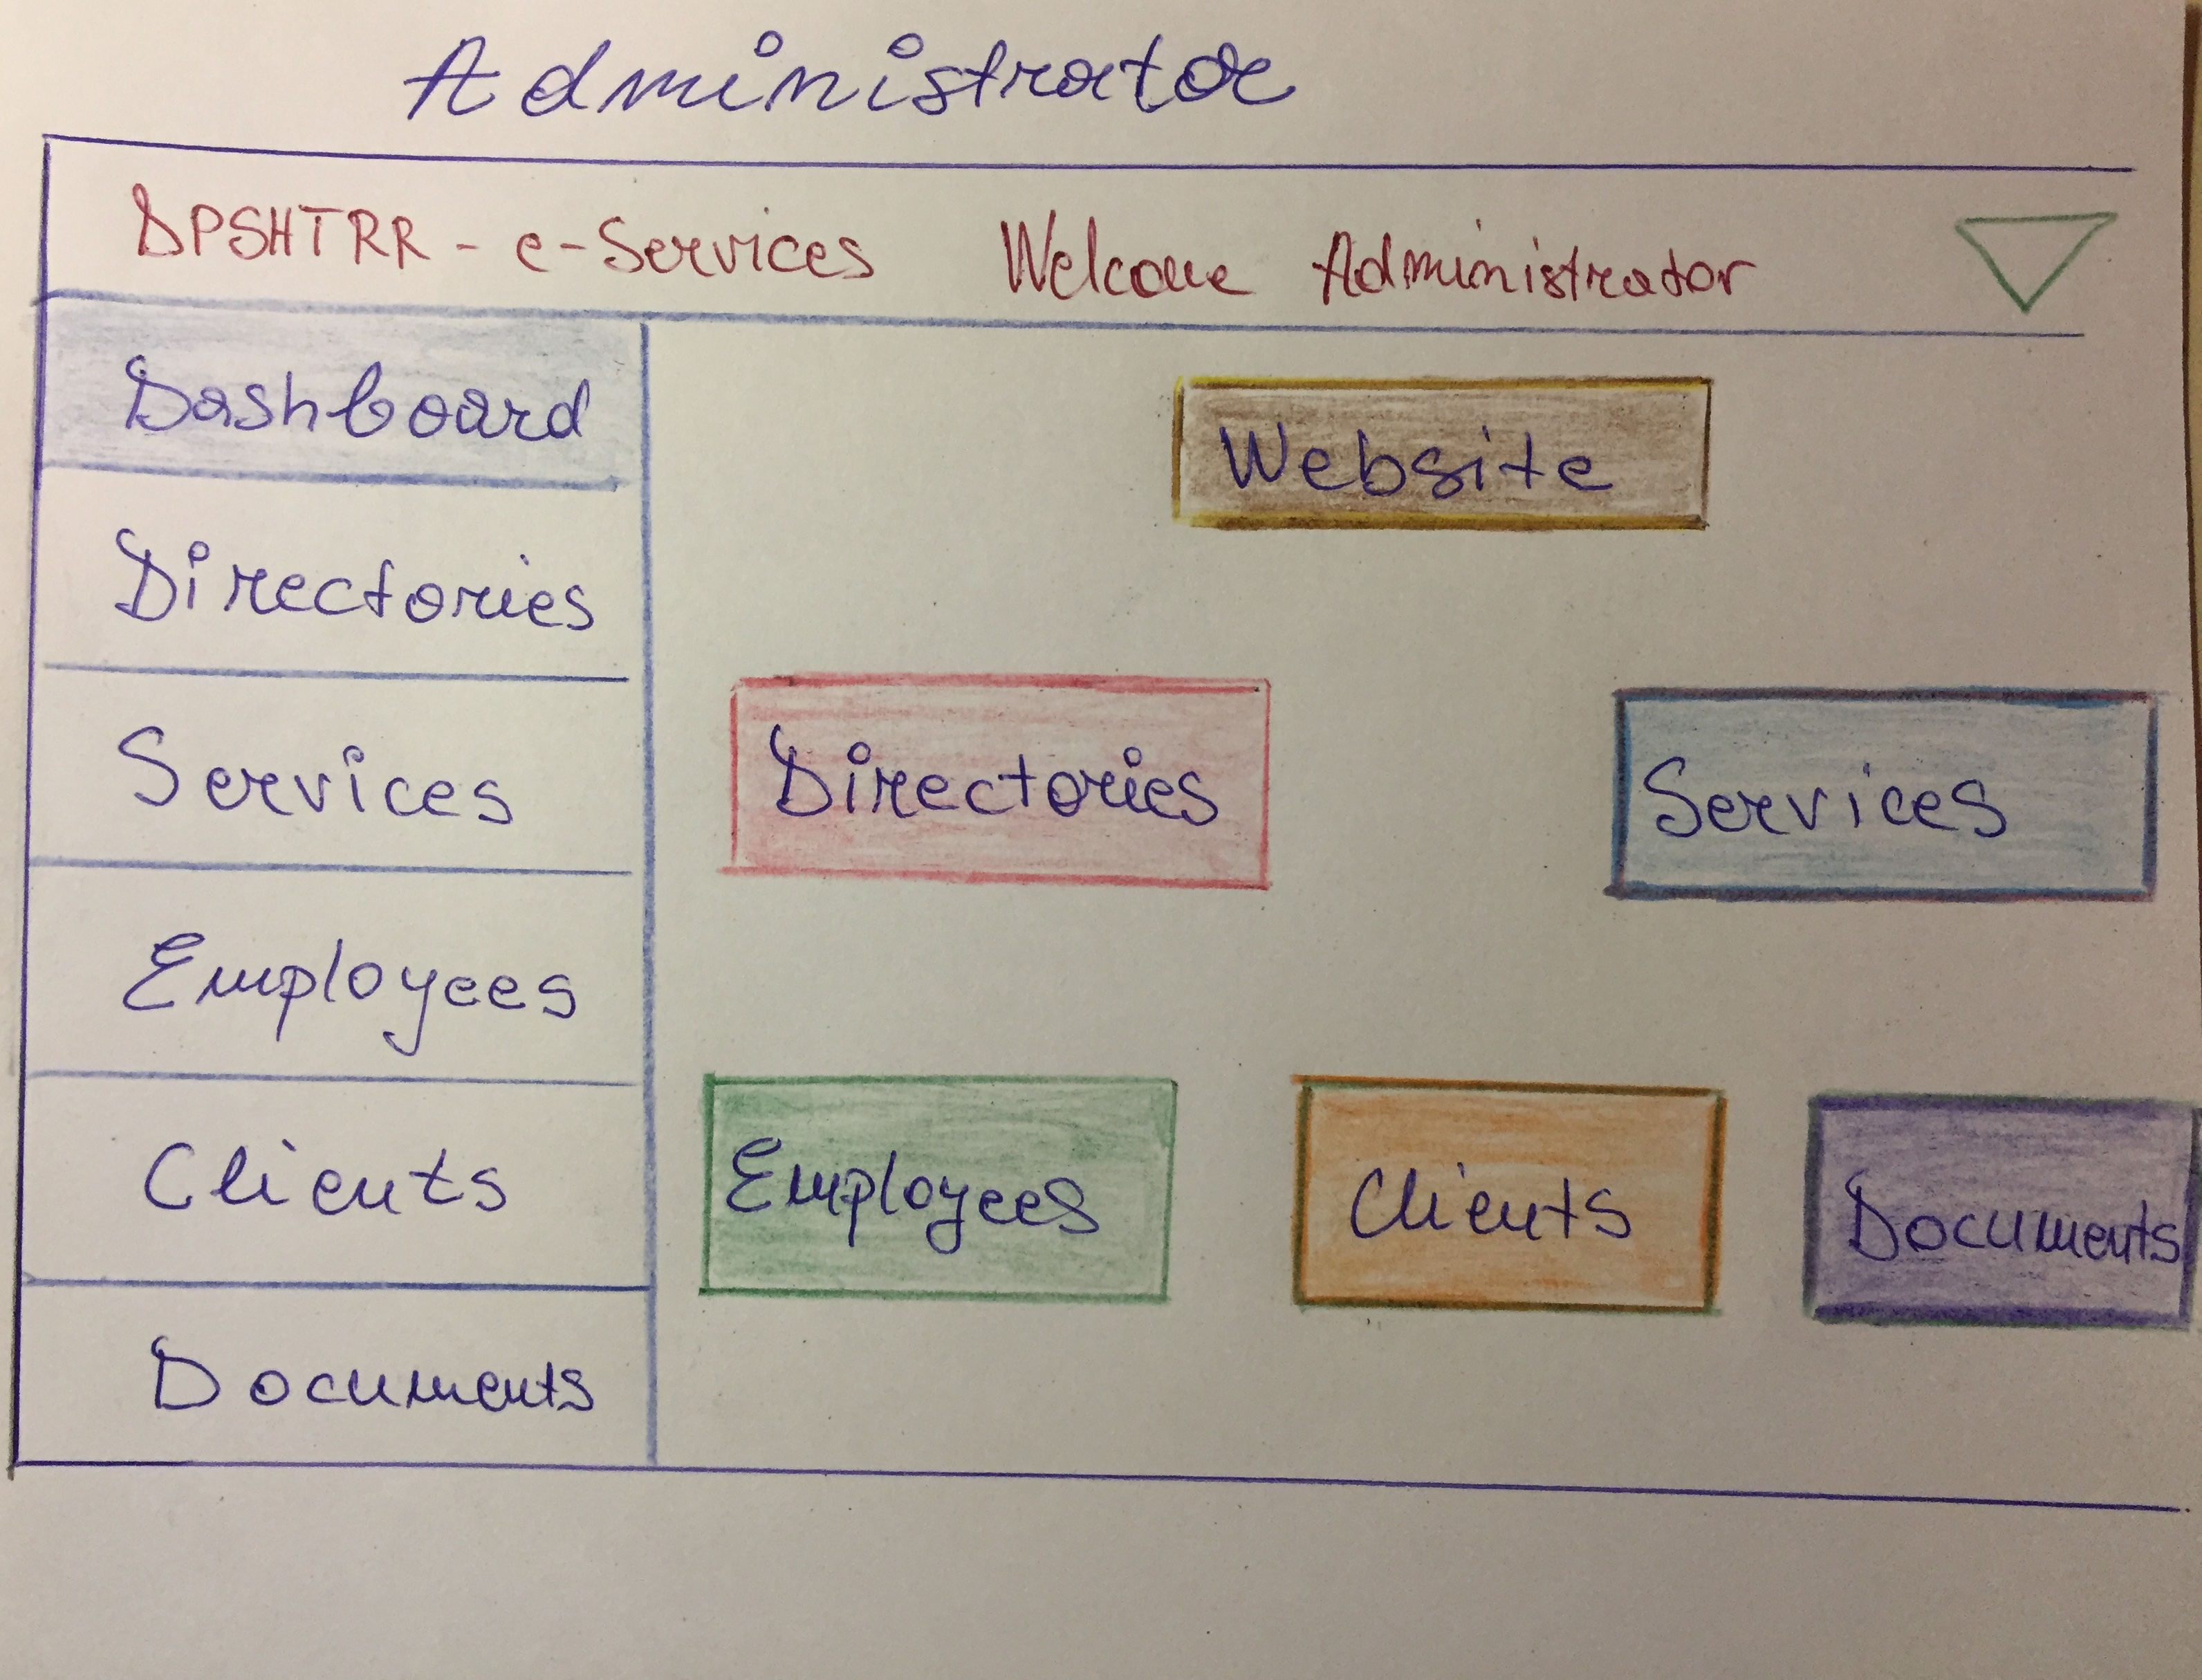 Administrator
DPSHTRR - e-Services Welcome Administrator
Dashboard
Directories
Services
Employees
Clients
Documents
Website
Directories Services
Employees Clients Documents